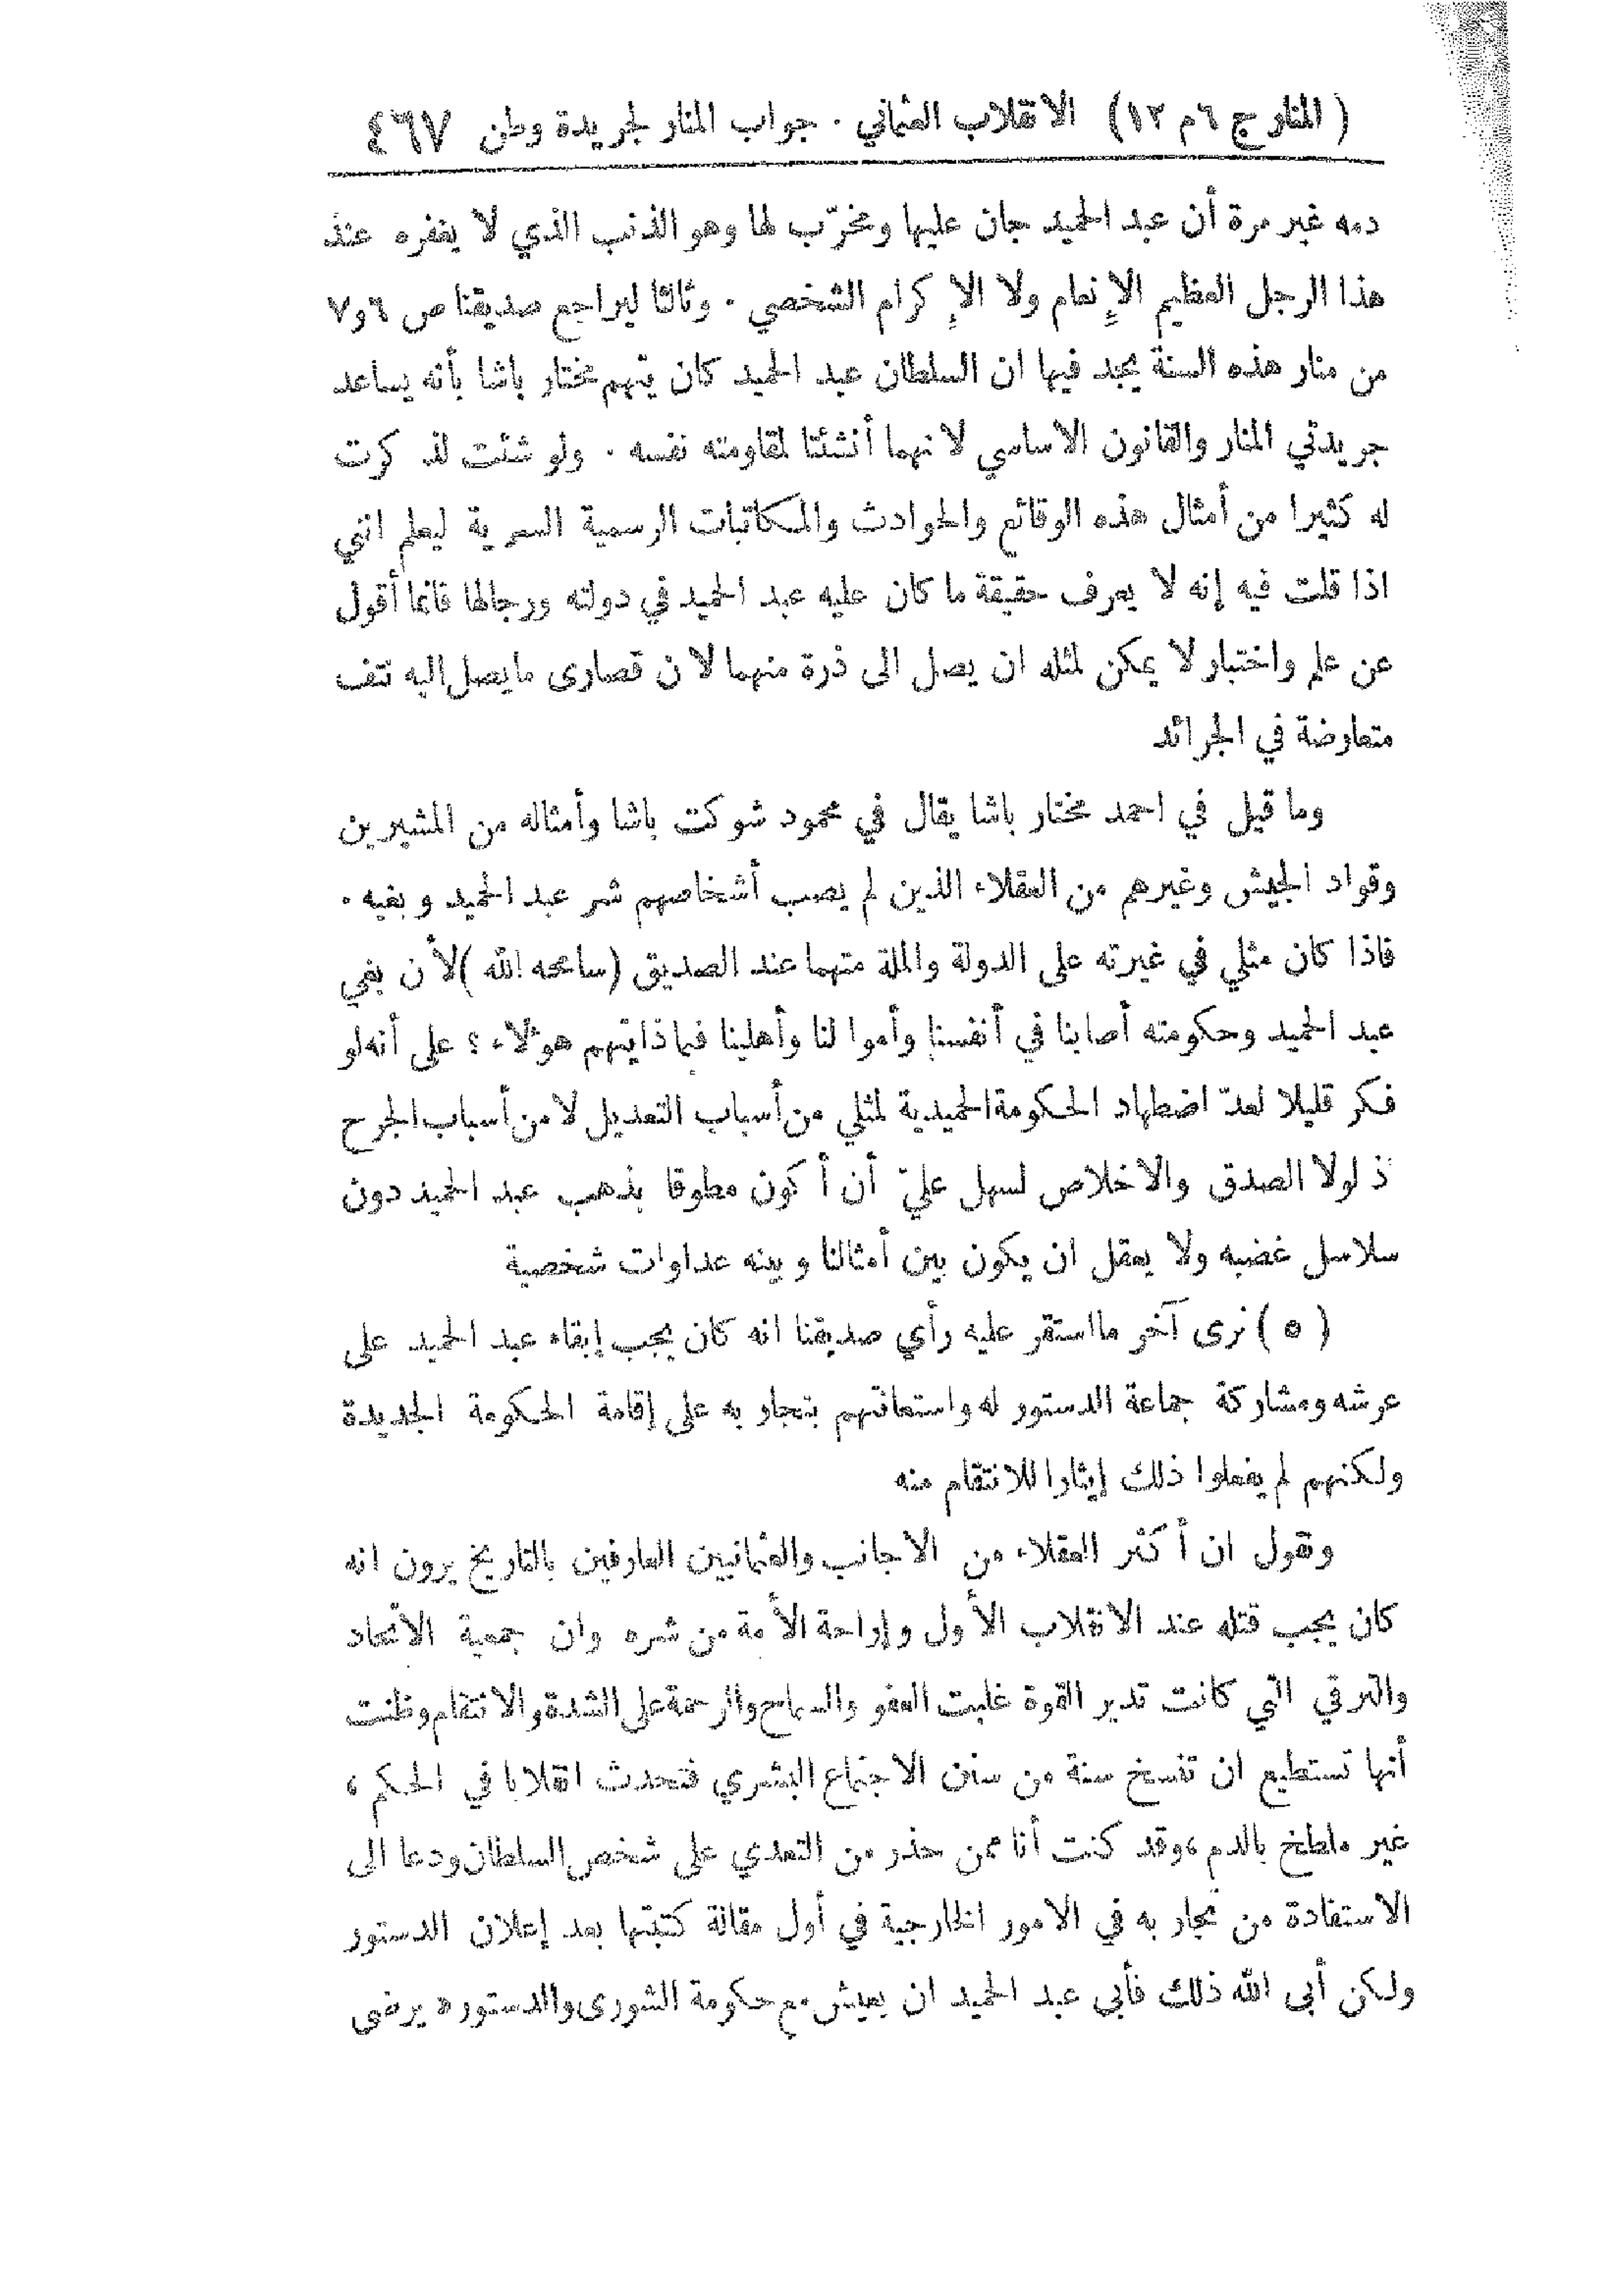 ( المنار ج ٦ م ١٢ ) الانقلاب العثماني . جواب المنار لجريدة وطن ٤٦٧
دمه غير مرة أن عبد الحميد جان عليها ومخرّب لها وهو الذنب الذي لا يغفره عند
هذا الرجل العظيم الإنعام ولا الإكرام الشخصي . وثالثا ليراجع صديقنا ص ٦ و٧
من منار هذه السنة يجد فيها ان السلطان عبد الحميد كان يتهم مختار باشا بأنه يساعد
جريدتي المنار والقانون الاساسي لانهما أنشئتا لمقاومته نفسه . ولو شئت لذكرت
له كثيرا من أمثال هذه الوقائع والحوادث والمكاتبات الرسمية السرية ليعلم انني
اذا قلت فيه إنه لا يعرف حقيقة ما كان عليه عبد الحميد في دولته ورجالها فانما أقول
عن علم واختبار لا يمكن لمثله ان يصل الى ذرة منهما لان قصارى ما يصل اليه نتف
متعارضة في الجرائد
وما قيل في احمد مختار باشا يقال في محمود شوكت باشا وأمثاله من المشيرين
وقواد الجيش وغيرهم من العقلاء الذين لم يصب أشخاصهم شر عبد الحميد وبغيه .
فاذا كان مثلي في غيرته على الدولة والملة متهما عند الصديق (سامحه الله) لأن بغي
عبد الحميد وحكومته أصابنا في أنفسنا وأموالنا وأهلينا فبماذا يتهم هؤلاء ؟ على أنه لو
فكر قليلا لعدّ اضطهاد الحكومة الحميدية لمثلي من أسباب التعديل لا من أسباب الجرح
ذ لولا الصدق والاخلاص لسهل عليّ أن أكون مطوقا بذهب عبد الحميد دون
سلاسل غضبه ولا يعقل ان يكون بين أمثالنا وبينه عداوات شخصية
( ٥ ) نرى آخر ما استقر عليه رأي صديقنا انه كان يجب إبقاء عبد الحميد على
عرشه ومشاركة جماعة الدستور له واستعانتهم بتجاربه على إقامة الحكومة الجديدة
ولكنهم لم يفعلوا ذلك إيثارا للانتقام منه
ونقول ان أكثر العقلاء من الاجانب والعثمانيين العارفين بالتاريخ يرون انه
كان يجب قتله عند الانقلاب الأول وإراحة الأمة من شره وان جمعية الاتحاد
والترقي التي كانت تدير القوة غلبت العفو والسماح والرحمة على الشدة والانتقام وظنت
أنها تستطيع ان تنسخ سنة من سنن الاجتماع البشري فتحدث انقلابا في الحكم ،
غير ملطخ بالدم ، وقد كنت أنا ممن حذر من التعدي على شخص السلطان ودعا الى
الاستفادة من تجاربه في الامور الخارجية في أول مقالة كتبتها بعد إعلان الدستور
ولكن أبى الله ذلك فأبي عبد الحميد ان يعيش مع حكومة الشورى والدستور ه يرضى